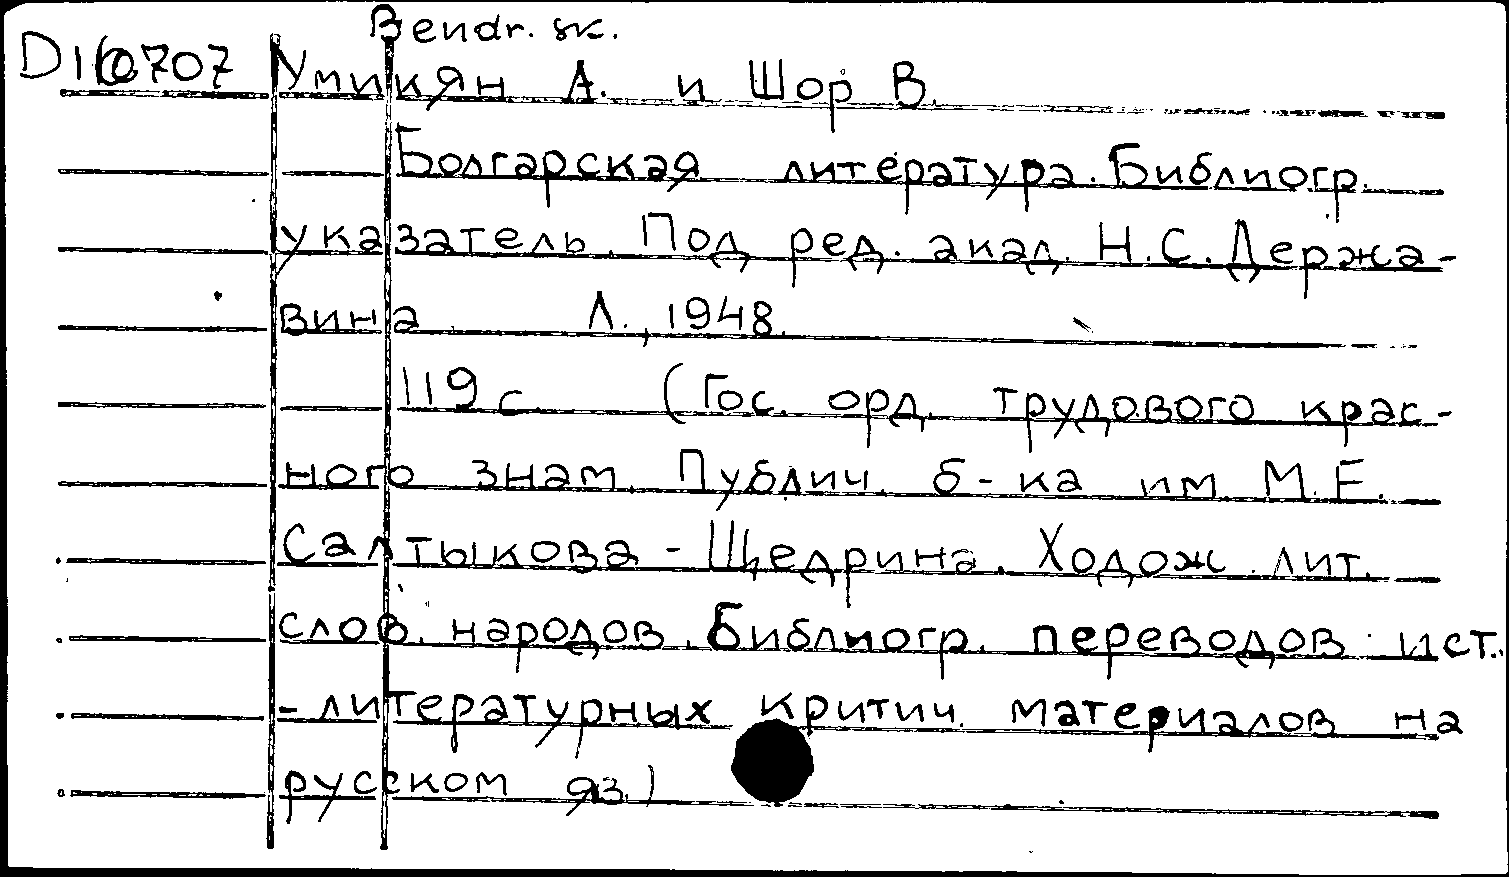 Bendr. sk.
D160707 Умикян А. и Шор В.
Болгарская литература. Библиогр.
указатель. Под ред. акад. Н.С. Держа-
вина Л., 1948.
119 с (Гос. орд. трудового крас-
ного знам. Публич. б-ка им. М.Е.
Салтыкова-Щедрина. Ходож. лит.
слов. народов. Библиогр. переводов ист.
-литературных критич. материалов на
русском яз.)